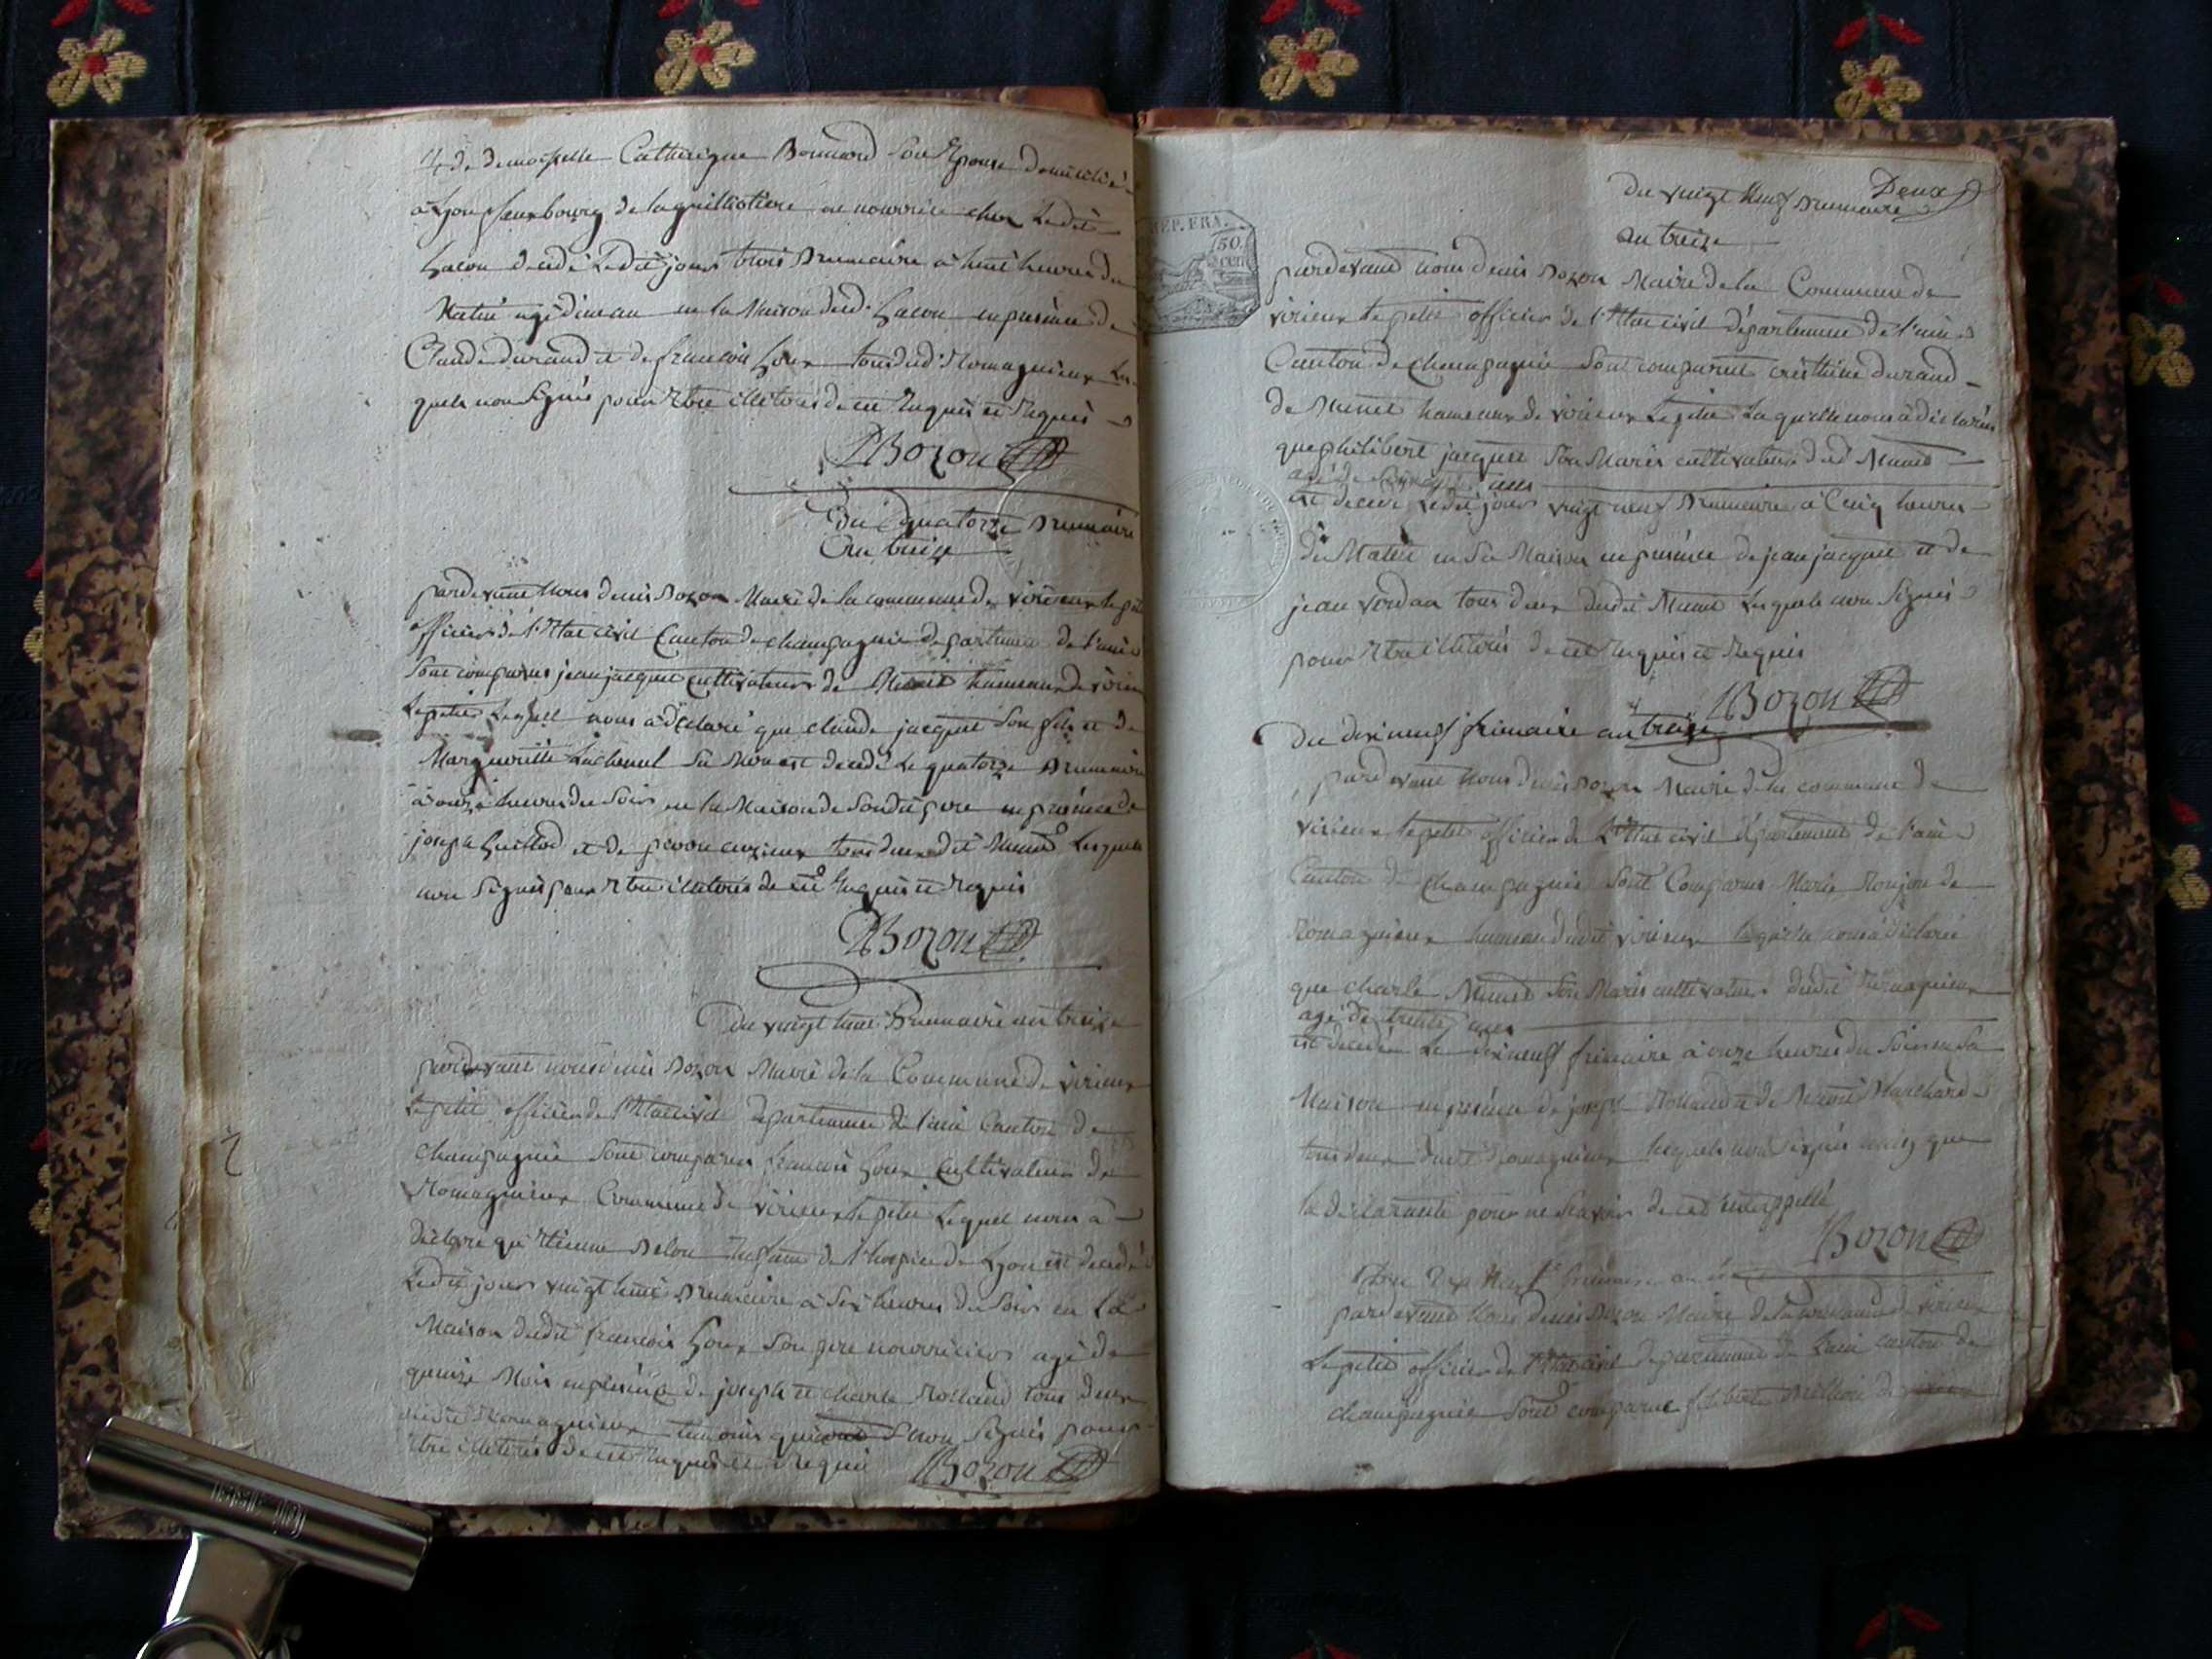 & de demoiselle Catherigne Bonnard Son Epouse domicilié
à Lyon feauxbourg de la guilliotiere en nourrice chez Ledit
décedé Ledit jour trois Brumaire à huit heures du
Matin agé d'un an en la Maison dud. en presence de
Claude durand et de francois tous dud. Romagnieux Les
quels non Signés pour Etre illetorés de ce Enquis et Requis
DBozon
Du quatorze Brumaire
An treize
pardevant Nous denis Bozon Maire de la commune de virieux le petit
officier de l'Etat civil Canton de champagnie departement de l'ain
Sont comparus jean jacquet cultivateur de Munet hameaux de virieux
Lepetit Lequel nous à déclaré que claude jacquet Son fils et de
Margueritte Sa Mere est decedé Le quatorze Brumaire
à onze heures du Soir en la Maison de Sondit pere en presence de
joseph et de tous deux dudit Munet Lesquels
non Signés pour Etre illetorés de ce Enquis et Requis
DBozon
du vingt huit Brumaire an treize
pardevant nous denis Bozon Maire de la Commune de virieux
Le petit officier de l'Etat civil departement de l'ain Canton de
Champagnie Sont comparus francois cultivateur de
Romagnieux Commune de virieux le petit Lequel nous à
déclaré qu'Etienne Enfant de l'hospice de Lyon est decedé
Ledit jour vingt huit Brumaire à Six heures du Soir en la
Maison dudit francois Son pere nourricier agé de
quinze Mois en presence de joseph et charle Rolland tous deux
dudit Romagnieux temoins qui non Signés pour
Etre illetorés de ce Enquis et Requis DBozon
Deux
Du vingt Neuf Brumaire
an treize
REP. FRA.
50
cen
pardevant nous denis Bozon Maire de la Commune de
virieux le petit officier de l'Etat civil département de l'ain
Canton de Champagnie Sont comparut durand
de Munet hameaux de virieux Le petit Laquelle nous à déclarés
que philibert jacquet Son Maris cultivateur dud. Munet
agé de ans
est decedé Ledit jour vingt neuf Brumaire à Cinq heures
du Matin en Sa Maison en presence de jean jacquet et de
jean tous deux dudit Munet Lesquels non Signés
pour Etre illetorés de ce Enquis et Requis
DBozon
Du dixneuf frimaire an treize
pardevant Nous denis Bozon Maire de la commune de
virieux le petit officier de l'Etat civil département de l'ain
Canton de champagnie Sont Comparus Marie de
Romagnieux hameau dudit virieux laquelle nous à déclaré
que charle Munet Son Maris cultivateur dudit Romagnieux
agé de trente ans
est decedé Le dixneuf frimaire à onze heures du Soir en Sa
Maison en presence de joseph Rolland et de Benoit Marchand
tous deux dudit Romagnieux Lesquels non Signés que
la déclarante pour ne Scavoir de ce interppellé
Bozon
Du dix Neuf frimaire an
pardevant Nous denis Bozon Maire de la commune de virieux
Le petit officier de l'Etat civil departement de Lain canton de
champagnie Sont comparut de